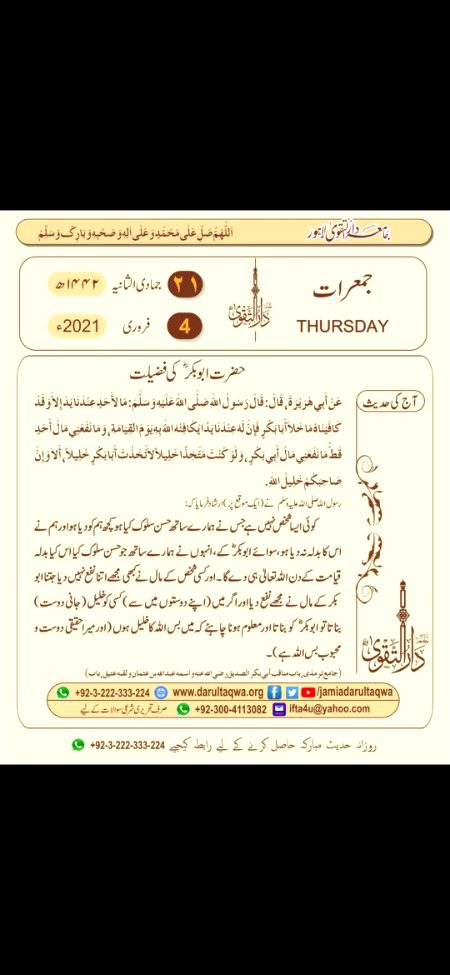 جامعہ دارالتقویٰ لاہور
اَللّٰهُمَّ صَلِّ عَلٰى مُحَمَّدٍ وَّعَلٰى اٰلِهٖ وَصَحْبِهٖ وَبَارِكْ وَسَلِّمْ
جمعرات
THURSDAY
۲۱ جمادی الثانیہ ۱۴۴۲ھ
4 فروری 2021ء
دارالتقویٰ
آج کی حدیث
حضرت ابوبکرؓ کی فضیلت
عَنْ أَبِي هُرَيْرَةَ، قَالَ: قَالَ رَسُولُ اللهِ صَلَّى اللهُ عَلَيْهِ وَسَلَّمَ: مَا لِأَحَدٍ عِنْدَنَا يَدٌ إِلَّا وَقَدْ
كَافَيْنَاهُ مَا خَلَا أَبَا بَكْرٍ فَإِنَّ لَهُ عِنْدَنَا يَدًا يُكَافِئُهُ اللهُ بِهِ يَوْمَ القِيَامَةِ، وَمَا نَفَعَنِي مَالُ أَحَدٍ
قَطُّ مَا نَفَعَنِي مَالُ أَبِي بَكْرٍ، وَلَوْ كُنْتُ مُتَّخِذًا خَلِيلًا لَاتَّخَذْتُ أَبَا بَكْرٍ خَلِيلًا، أَلَا وَإِنَّ
صَاحِبَكُمْ خَلِيلُ اللهِ.
رسول اللہ صلی اللہ علیہ وسلم نے (ایک موقع پر) ارشاد فرمایا کہ:
کوئی ایسا شخص نہیں ہے جس نے ہمارے ساتھ حسن سلوک کیا ہو کچھ ہم کو دیا ہو اور ہم نے
اس کا بدلہ نہ دیا ہو، سوائے ابوبکرؓ کے، انہوں نے ہمارے ساتھ جو حسن سلوک کیا اس کا بدلہ
قیامت کے دن اللہ تعالیٰ ہی دے گا۔ اور کسی شخص کے مال نے کبھی مجھے اتنا نفع نہیں دیا جتنا ابو
بکر کے مال نے مجھے نفع دیا اور اگر میں (اپنے دوستوں میں سے) کسی کو خلیل (جانی دوست)
بناتا تو ابوبکرؓ کو بناتا اور معلوم ہونا چاہئے کہ میں بس اللہ کا خلیل ہوں (اور میرا حقیقی دوست و
محبوب بس اللہ ہے)۔
(جامع ترمذی، باب مناقب أبي بكر الصديق رضي الله عنه واسمه عبد الله بن عثمان ولقبه عتيق، باب)
دارالتقویٰ
+92-3-222-333-224 www.darultaqwa.org /jamiadarultaqwa
صرف تحریری شرعی سوالات کے لیے +92-300-4113082 ifta4u@yahoo.com
روزانہ حدیث مبارکہ حاصل کرنے کے لیے رابطہ کیجیے +92-3-222-333-224